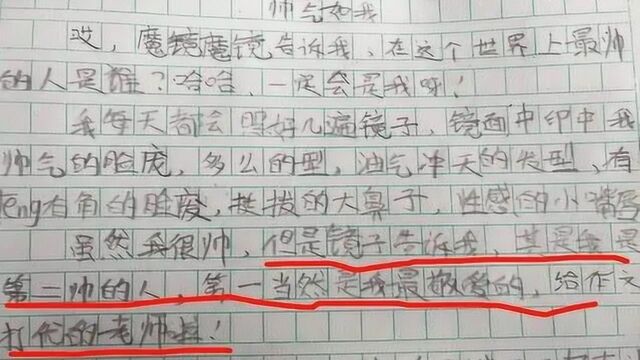 帅气如我
哎，魔镜魔镜告诉我、在这个世界上最帅
的人是谁？哈哈，一定会是我呀！
我每天都会照好几遍镜子，镜面中印中我
帅气的脸庞，多么的型，油气冲天的发型，有
leng有角的脸庞，挺拔的大鼻子，性感的小嘴唇
虽然我很帅，但是镜子告诉我，其是我是
第二帅的人，第一当然是我最敬爱的，给作文
打优的老师拉！